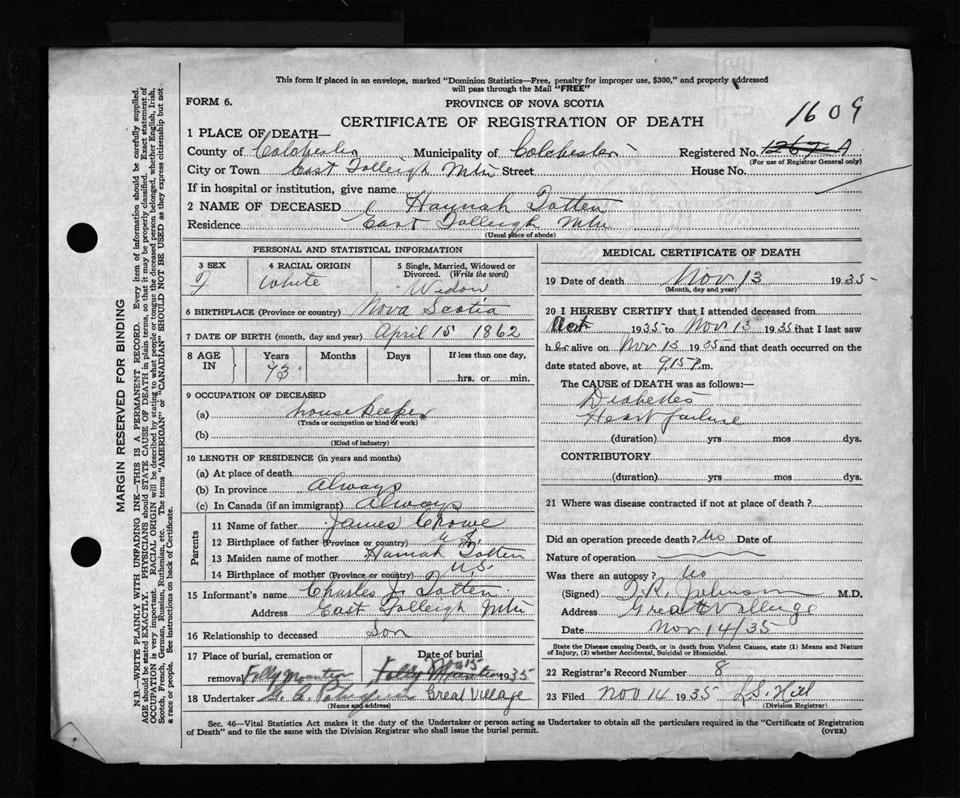 This form if placed in an envelope, marked "Dominion Statistics—Free, penalty for improper use, $300," and properly addressed
will pass through the Mail "FREE"
FORM 6.
PROVINCE OF NOVA SCOTIA
1609
CERTIFICATE OF REGISTRATION OF DEATH
1 PLACE OF DEATH—
County of Colchester Municipality of Colchester Registered No. A
(For use of Registrar General only)
City or Town East Folleigh Mtn Street House No.
If in hospital or institution, give name
2 NAME OF DECEASED Hannah Totten
Residence East Folleigh Mtn
(Usual place of abode)
PERSONAL AND STATISTICAL INFORMATION
3 SEX 4 RACIAL ORIGIN 5 Single, Married, Widowed or
Divorced. (Write the word)
F White Widow
6 BIRTHPLACE (Province or country) Nova Scotia
7 DATE OF BIRTH (month, day and year) April 15 1862
8 AGE IN Years Months Days If less than one day,
73 hrs. or min.
9 OCCUPATION OF DECEASED
(a) housekeeper
(Trade or occupation or kind of work)
(b)
(Kind of industry)
10 LENGTH OF RESIDENCE (in years and months)
(a) At place of death
(b) In province always
(c) In Canada (if an immigrant) always
Parents
11 Name of father James Crowe
12 Birthplace of father (Province or country) N.S.
13 Maiden name of mother Hannah Totten
14 Birthplace of mother (Province or country) N.S.
15 Informant's name Charles J. Totten
Address East Folleigh Mtn
16 Relationship to deceased Son
17 Place of burial, cremation or Date of burial
removal Folly Mountain Nov 15 1935
18 Undertaker Great Village
(Name and address)
MEDICAL CERTIFICATE OF DEATH
19 Date of death Nov 13 1935
(Month, day and year)
20 I HEREBY CERTIFY that I attended deceased from
1935 to Nov 13 1935 that I last saw
her alive on Nov 13 1935 and that death occurred on the
date stated above, at 9.15 P.m.
The CAUSE OF DEATH was as follows:—
Diabetes
Heart failure
(duration) yrs mos dys.
CONTRIBUTORY
(duration) yrs. mos dys.
21 Where was disease contracted if not at place of death?
Did an operation precede death? No Date of
Nature of operation
Was there an autopsy? No
(Signed) Johnson M.D.
Address Great Village
Date Nov 14/35
State the Disease causing Death, or in death from Violent Causes, state (1) Means and Nature
of Injury, (2) whether Accidental, Suicidal or Homicidal.
22 Registrar's Record Number 8
23 Filed Nov 14 1935 L.S. Hill
(Division Registrar)
Sec. 46—Vital Statistics Act makes it the duty of the Undertaker or person acting as Undertaker to obtain all the particulars required in the "Certificate of Registration
of Death" and to file the same with the Division Registrar who shall issue the burial permit.
(OVER)
MARGIN RESERVED FOR BINDING
N.B.—WRITE PLAINLY WITH UNFADING INK—THIS IS A PERMANENT RECORD. Every item of information should be carefully supplied.
AGE should be stated EXACTLY. PHYSICIANS should STATE CAUSE OF DEATH in plain terms, so that it may be properly classified. Exact statement of
OCCUPATION is very important. RACIAL ORIGIN will be described by stating to what people or tongue the deceased person belonged, whether English, Irish,
Scotch, French, German, Russian, Ruthenian, etc. The terms "AMERICAN" or "CANADIAN" SHOULD NOT BE USED as they express citizenship but not
a race or people. See instructions on back of Certificate.